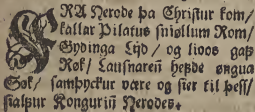 FRA Nerode þa Christur kom/
kallar Pilatus sniøllum Rom/
Gydinga Lyd/ og lioos gaß
Rok/ Lausnareñ hefde øngua
Sok/ samþyckur være og sier til þess/
sialfur Kongurin̄ Herodes.